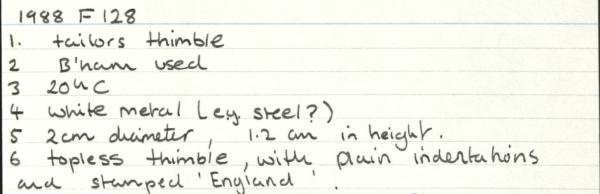 1988 F 128
1. tailors thimble
2 B'ham used
3 20th C
4 white metal (eg steel?)
5 2cm diameter, 1.2 cm in height.
6 topless thimble, with plain indentations
and stamped 'England'.